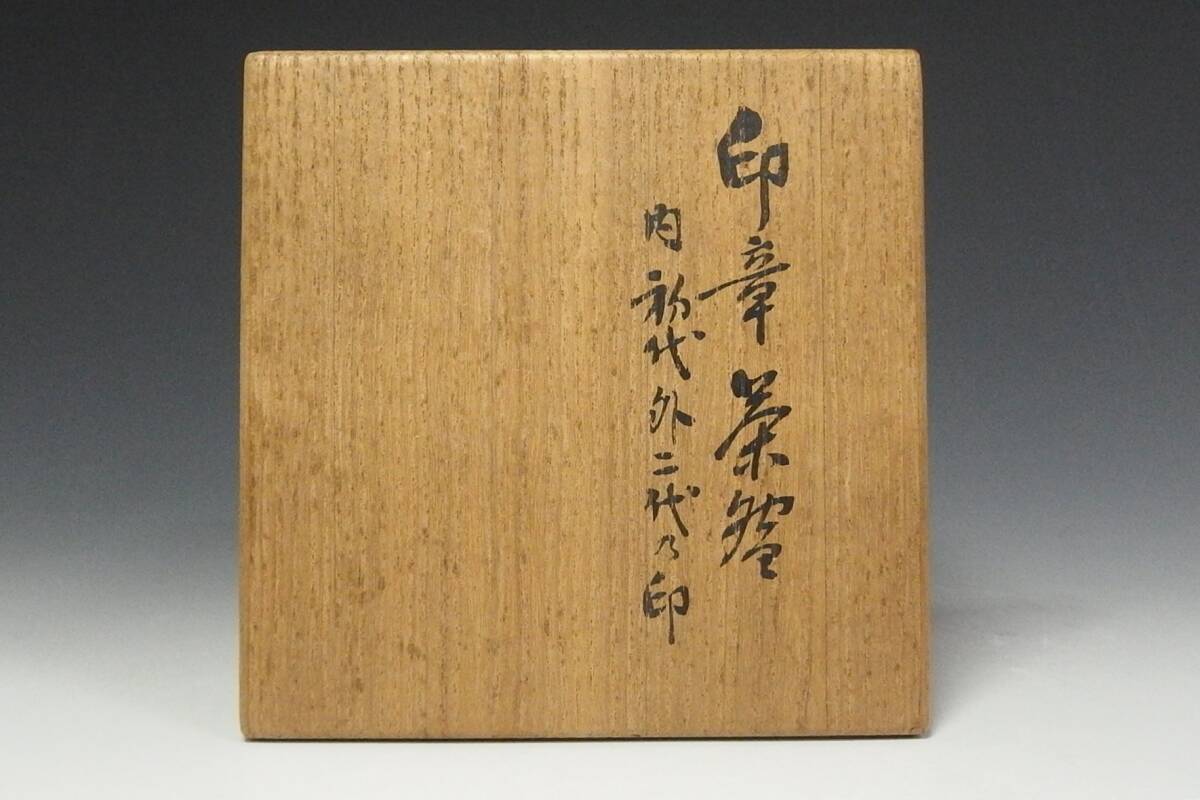 印章茶盌
内初代外二代乃印